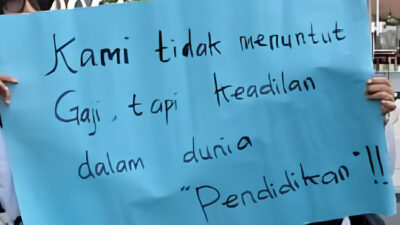 Kami tidak menuntut
Gaji, tapi keadilan
dalam dunia
"Pendidikan"!!